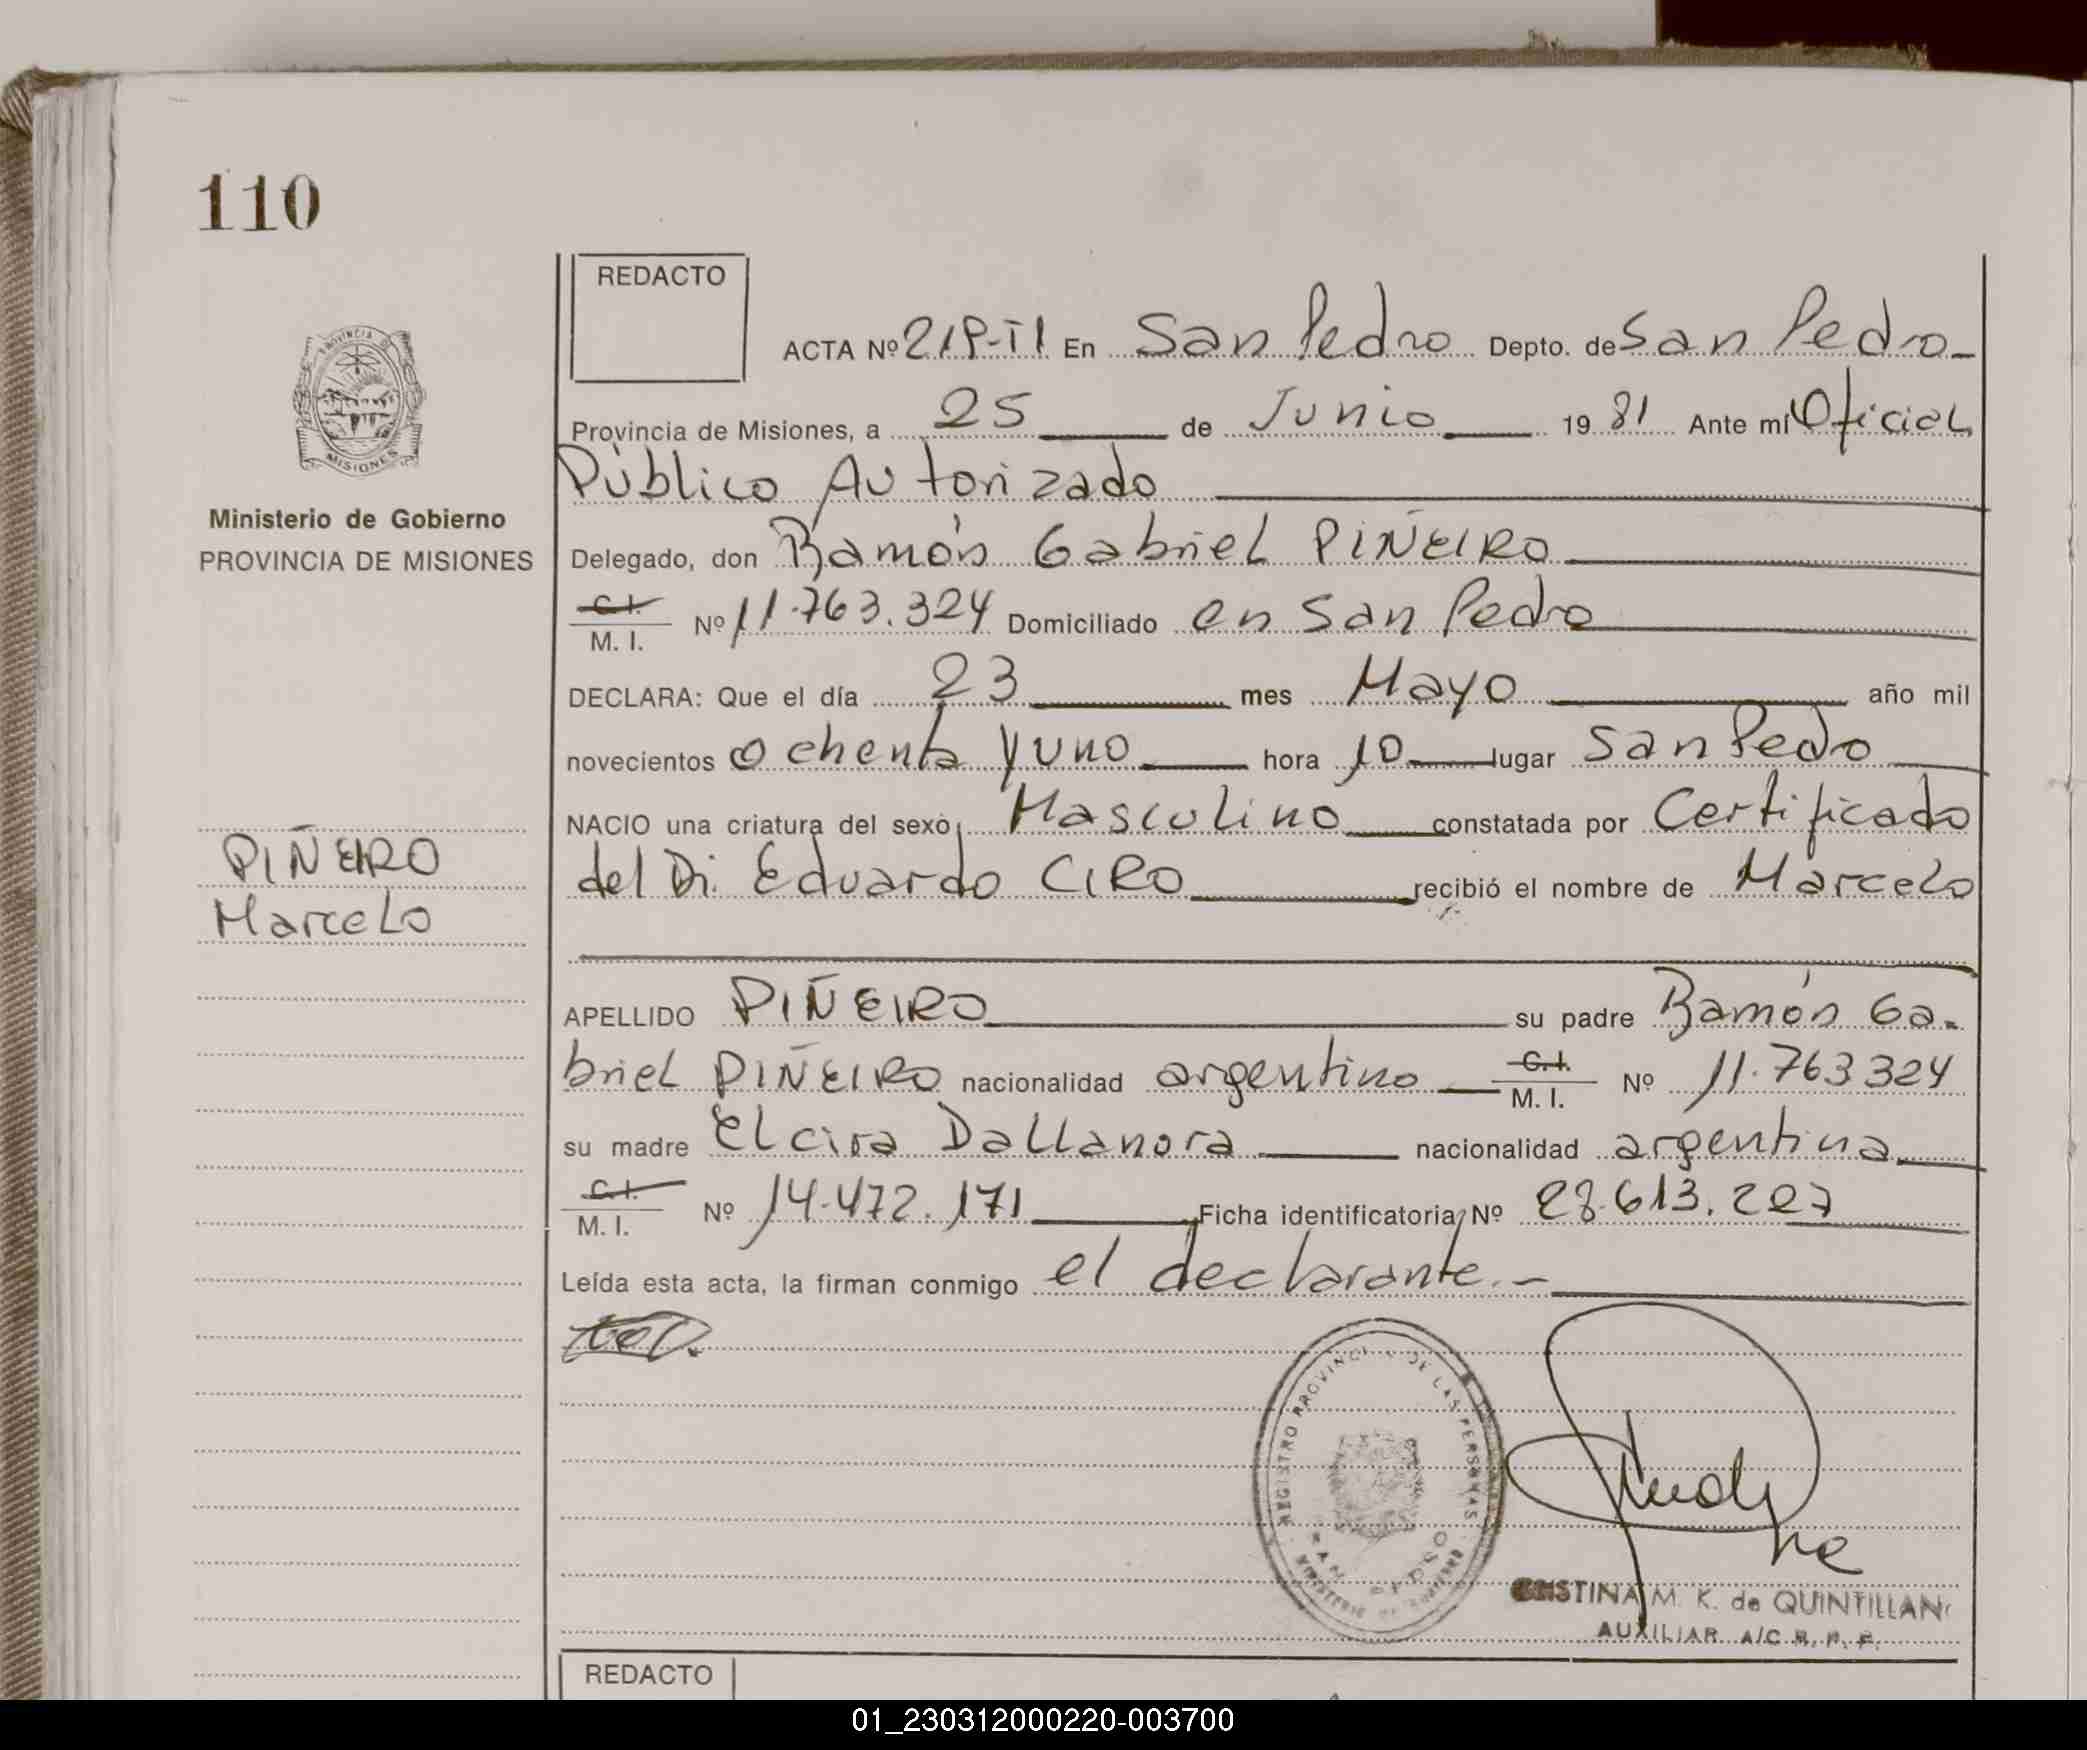 110
REDACTO
ACTA Nº 219-T1 En San Pedro Depto. de San Pedro
Provincia de Misiones, a 25 de Junio 1981 Ante mí Oficial
Público Autorizado
Ministerio de Gobierno
PROVINCIA DE MISIONES
Delegado, don Ramón Gabriel PIÑEIRO
C.I.
M. I. Nº 11.763.324 Domiciliado en San Pedro
DECLARA: Que el día 23 mes Mayo año mil
novecientos ochenta y uno hora 10 lugar San Pedro
NACIO una criatura del sexo Masculino constatada por Certificado
PIÑEIRO
Marcelo
del Dr. Eduardo CIRO recibió el nombre de Marcelo
APELLIDO PIÑEIRO su padre Ramón Ga-
briel PIÑEIRO nacionalidad argentino C.I. M. I. Nº 11.763324
su madre Elcira Dallanora nacionalidad argentina
C.I.
M. I. Nº 14.472.171 Ficha identificatoria Nº 28.613.227
Leída esta acta, la firman conmigo el declarante.-
REGISTRO PROVINCIAL DE LAS PERSONAS
SAN PEDRO
CRISTINA M. K. de QUINTILLAN
AUXILIAR A/C R. P. P.
REDACTO
01_230312000220-003700